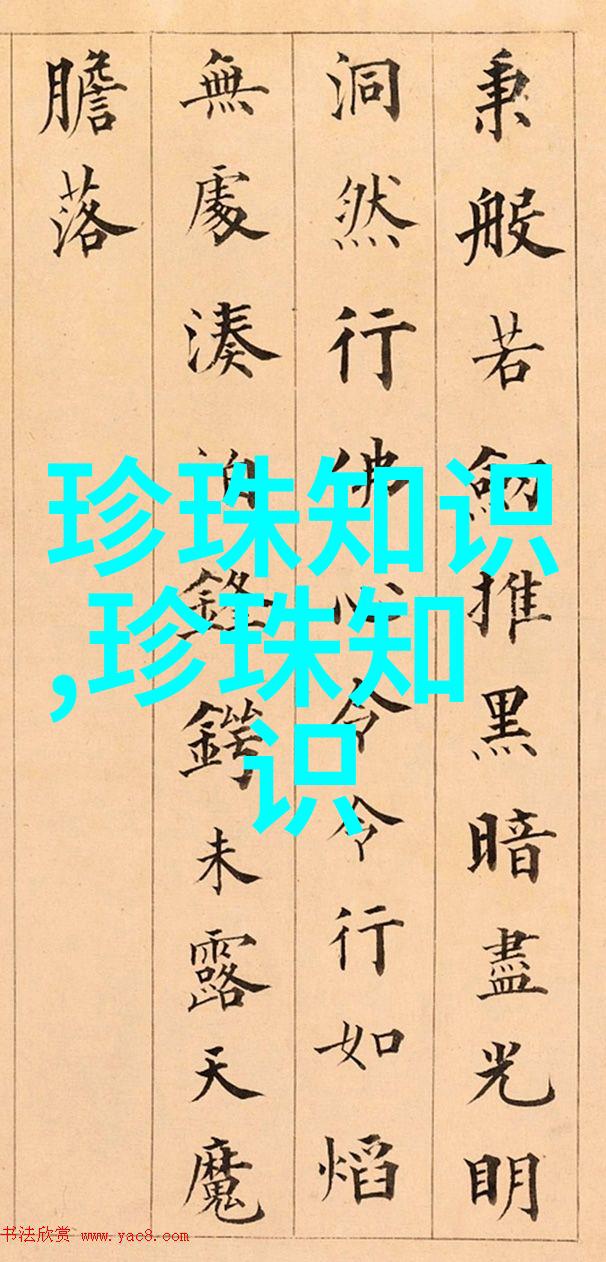 秉般若劒推黑暗盡光明
洞然行佛心令令行如熖
無處湊泊鋒鍔未露天魔
膽落
珍珠知识
,珍珠知
识
书法欣赏 www.yac8.com